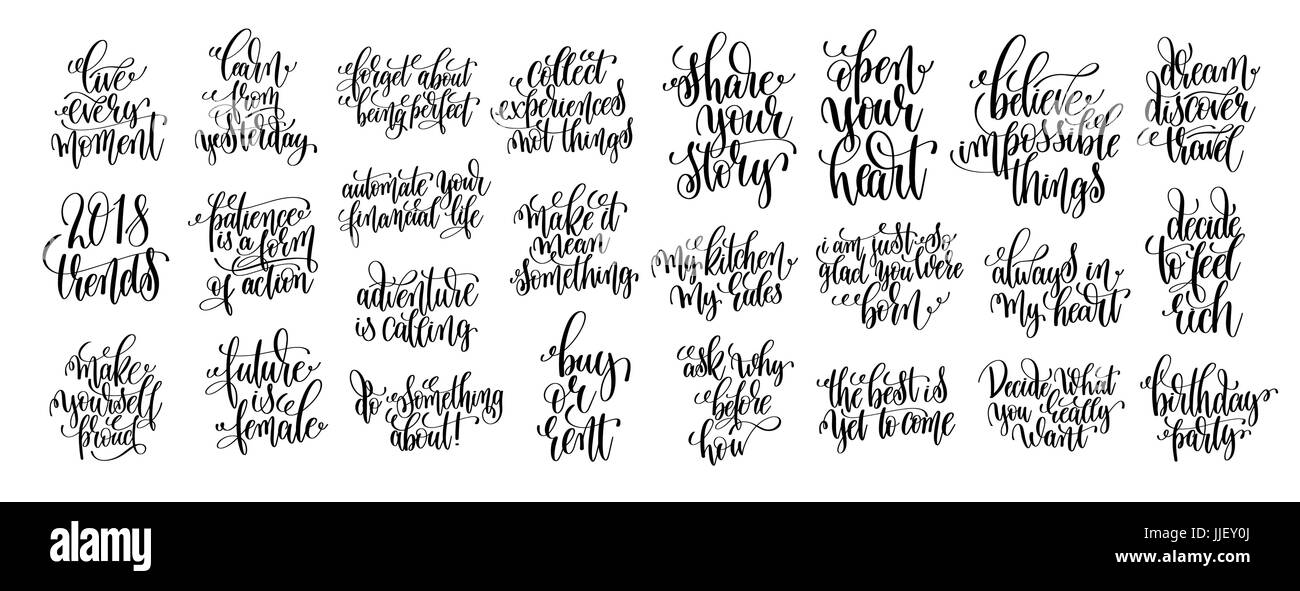 live
every
moment
learn
from
yesterday
forget about
being perfect
collect
experiences
not things
share
your
story
open
your
heart
believe
impossible
things
dream
discover
travel
2018
trends
patience
is a form
of action
automate your
financial life
make it
mean
something
my kitchen
my rules
i am just so
glad you were
born
always in
my heart
decide
to feel
rich
adventure
is calling
make
yourself
proud
future
is
female
do something
about!
buy
or
rent
ask why
before
how
the best is
yet to come
Decide What
you really
want
birthday
party
alamy
alamy
Image ID: JJEY0J
www.alamy.com